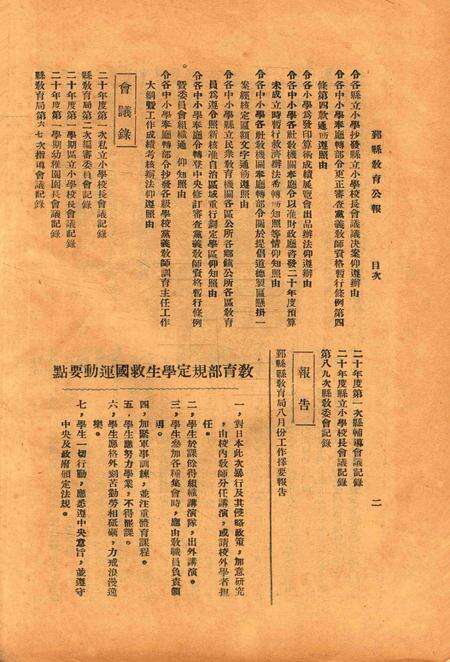 鄞縣教育公報
目次
二
令各縣立小學抄發縣立小學校長會議議決案仰遵辦由
令各中小學奉廳轉部令更正審查黨義教師資格暫行條例第四
條第四款通飭遵照由
令各小學為發印算術成績展覽會出品辦法仰遵辦由
令各中小學各社教機關奉廳令以准財政廳咨發二十年度預算
未成立時暫行救濟辦法希轉飭知照等情仰知照由
令各中小學各社教機關奉廳轉部令關於提倡道德製匾懸掛一
案經核定匾額文字通飭遵照由
令各中小學縣立民衆教育機關各區公所各鄉鎮公所各區教育
員為遵令照新核准自治區域重行劃定學區仰知照由
令各中小學奉廳令轉發中央修訂審查黨義教師資格暫行條例
暨委員會組織通則仰知照由
令各中小學奉廳轉部令抄發各級學校黨義教師訓育主任工作
大綱暨工作成績考核辦法仰遵照由
會議錄
二十年度第一次私立小學校長會議記錄
縣教育局第二次編審委員會記錄
二十年度第一學期區立小學校長會議記錄
二十年度第一學期幼稚園園長會議記錄
縣教育局第六七次指導會議記錄
二十年度第一次縣輔導會議記錄
二十年度縣立小學校長會議記錄
第八九次縣教委會記錄
報告
鄞縣縣教育局八月份工作撮要報告
教育部規定學生救國運動要點
一，對日本此次暴行及其侵略政策，加意研究
，由校內教師分任講演，或請校外學者担
任。
二，學生於課餘得組織講演隊，出外講演。
三，學生參加各種集會時，應由教職員負責領
導。
四，加緊軍事訓練，並注重體育課程。
五，學生應努力學業，不得罷課。
六，學生應格外刻苦勤勞相砥礪，力戒浪漫逸
樂。
七，學生一切行動，應悉遵中央意旨，並遵守
中央及政府頒定法規。